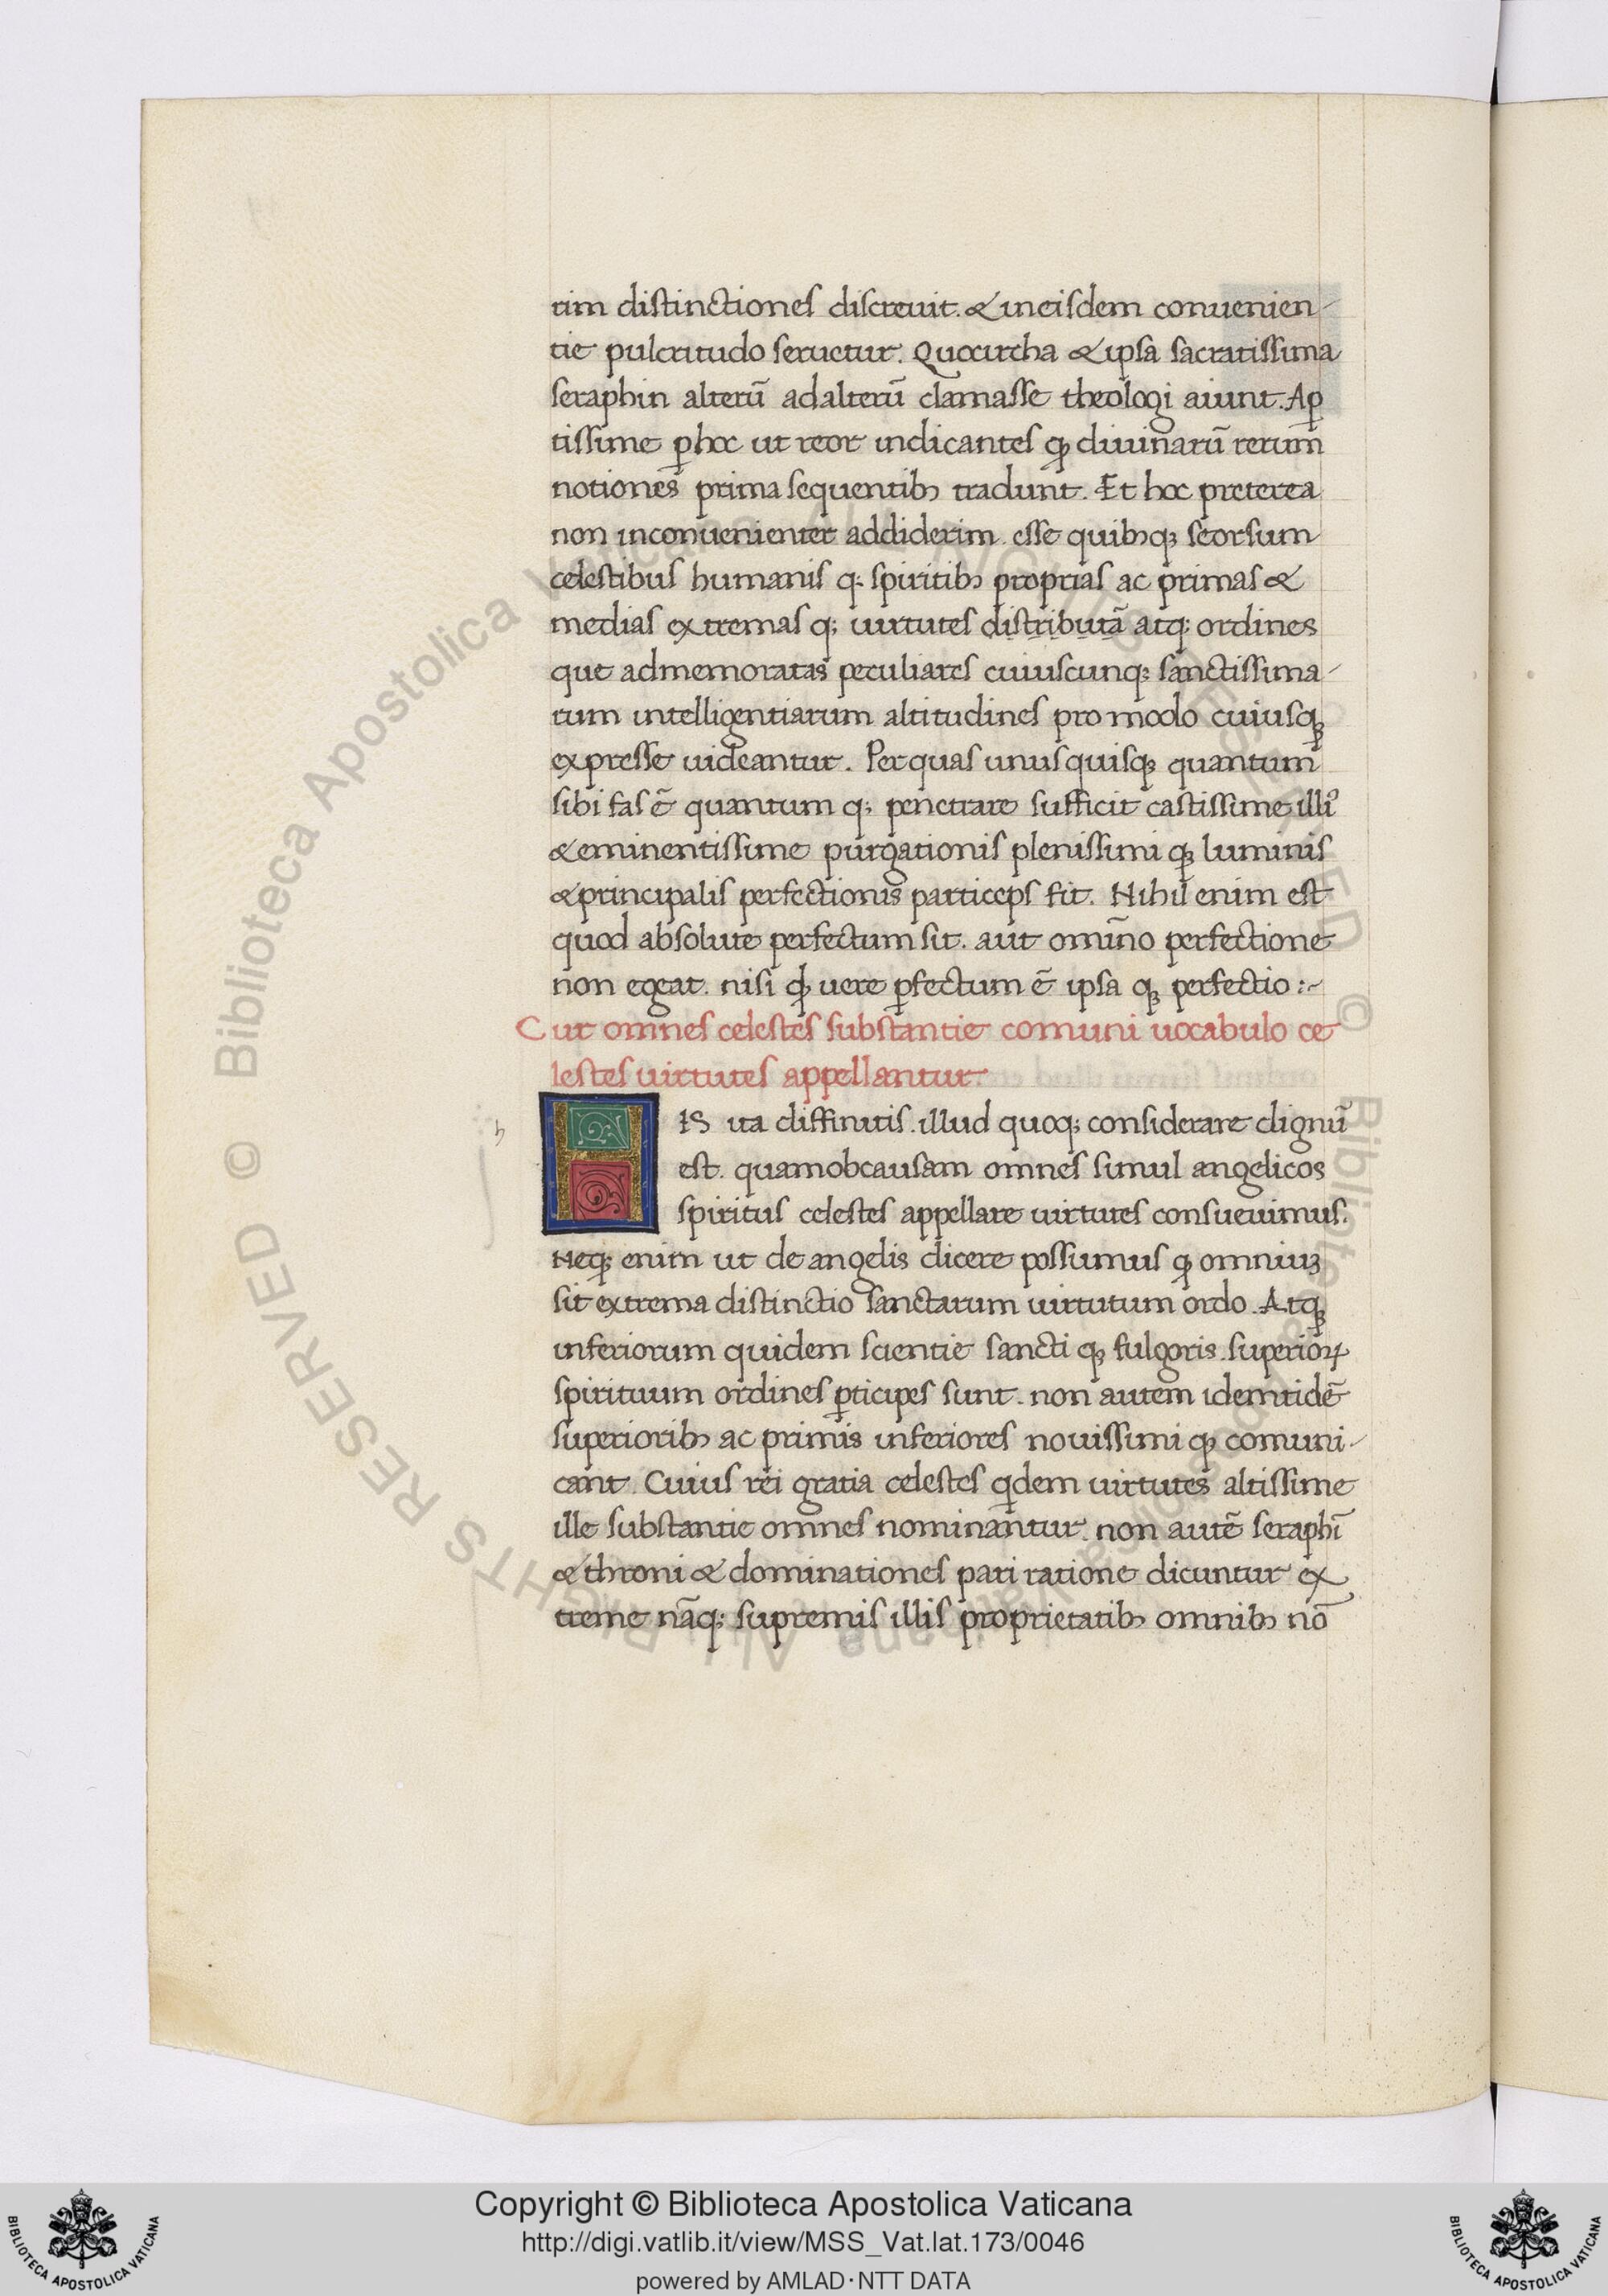 rim distinctiones discreuit. & in eisdem conuenien-
tie pulcritudo seruetur. Quocircha & ipsa sacratissima
seraphin alterū ad alterū clamasse theologi aiunt. Ap
tissime ꝑ hoc ut reor indicantes ꝙ diuinarū rerum
notiones prima sequentibꝫ tradunt. Et hoc preterea
non inconuenienter addiderim. esse quibꝫqꝫ seorsum
celestibus humanis qꝫ spiritibꝫ proprias ac primas &
medias extremas qꝫ uirtutes distributā atqꝫ ordines
que ad memoratas peculiares cuiuscunqꝫ sanctissima-
rum intelligentiarum altitudines pro modo cuiusqꝫ
expresse uideantur. Per quas unusquisqꝫ quantum
sibi fas ē quantum qꝫ penetrare sufficit castissime illiꝰ
& eminentissime purgationis plenissimi qꝫ luminis
& principalis perfectionis particeps fit. Nihil enim est
quod absolute perfectum sit. aut omīno perfectione
non egeat. nisi ꝙ uere ꝑfectum ē ipsa qꝫ perfectio :~
Cur omnes celestes substantie comuni uocabulo ce
lestes uirtutes appellantur
HIS ita diffinitis. illud quoqꝫ considerare dignū
est. quam ob causam omnes simul angelicos
spiritus celestes appellare uirtutes consueuimus.
Neqꝫ enim ut de angelis dicere possumus ꝙ omniuꝫ
sit extrema distinctio sanctarum uirtutum ordo. Atqꝫ
inferiorum quidem scientie sancti qꝫ fulgoris. superioꝝ
spirituum ordines ꝑticipes sunt. non autem idemtidē
superioribꝫ ac primis inferiores nouissimi qꝫ comuni-
cant. Cuius rei gratia celestes qͥdem uirtutes altissime
ille substantie omnes nominantur. non autē seraphī
& throni & dominationes pari ratione dicuntur ex
treme nāqꝫ supremis illis proprietatibꝫ omnibꝫ nō
h
© Biblioteca Apostolica Vaticana ALL RIGHTS RESERVED
© Biblioteca Apostolica Vaticana ALL RIGHTS RESERVED
Copyright © Biblioteca Apostolica Vaticana
http://digi.vatlib.it/view/MSS_Vat.lat.173/0046
powered by AMLAD·NTT DATA
BIBLIOTECA APOSTOLICA VATICANA
BIBLIOTECA APOSTOLICA VATICANA